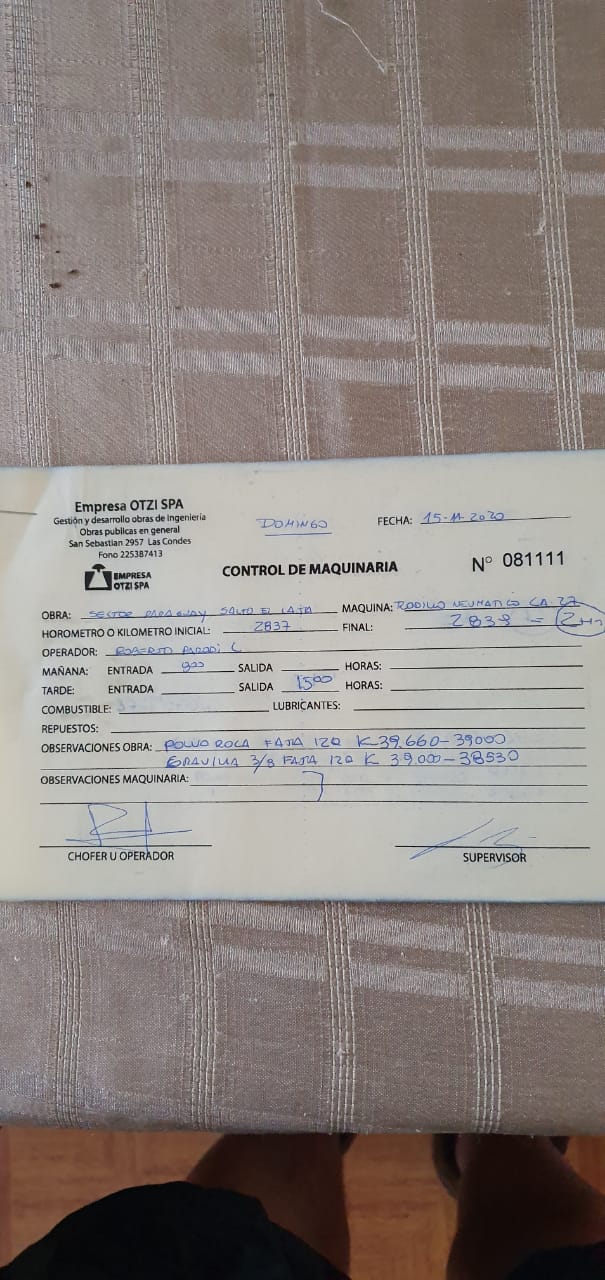 Empresa OTZI SPA
Gestión y desarrollo obras de Ingeniería
Obras publicas en general
San Sebastian 2957 Las Condes
Fono 225387413
EMPRESA
OTZI SPA
DOMINGO
FECHA: 15-11-2020
CONTROL DE MAQUINARIA
N° 081111
OBRA: SECTOR PARAGUAY SALTO EL LAJA MAQUINA: RODILLO NEUMATICO CA 27
HOROMETRO O KILOMETRO INICIAL: 2837 FINAL: 2839 = 2
OPERADOR: ROBERTO PARODI
MAÑANA: ENTRADA 900 SALIDA HORAS:
TARDE: ENTRADA SALIDA 1500 HORAS:
COMBUSTIBLE: LUBRICANTES:
REPUESTOS:
OBSERVACIONES OBRA: POLVO ROCA FAJA IZQ K 39.660-39000
GRAVILLA 3/8 FAJA IZQ K 39.000-38530
OBSERVACIONES MAQUINARIA:
CHOFER U OPERADOR
SUPERVISOR